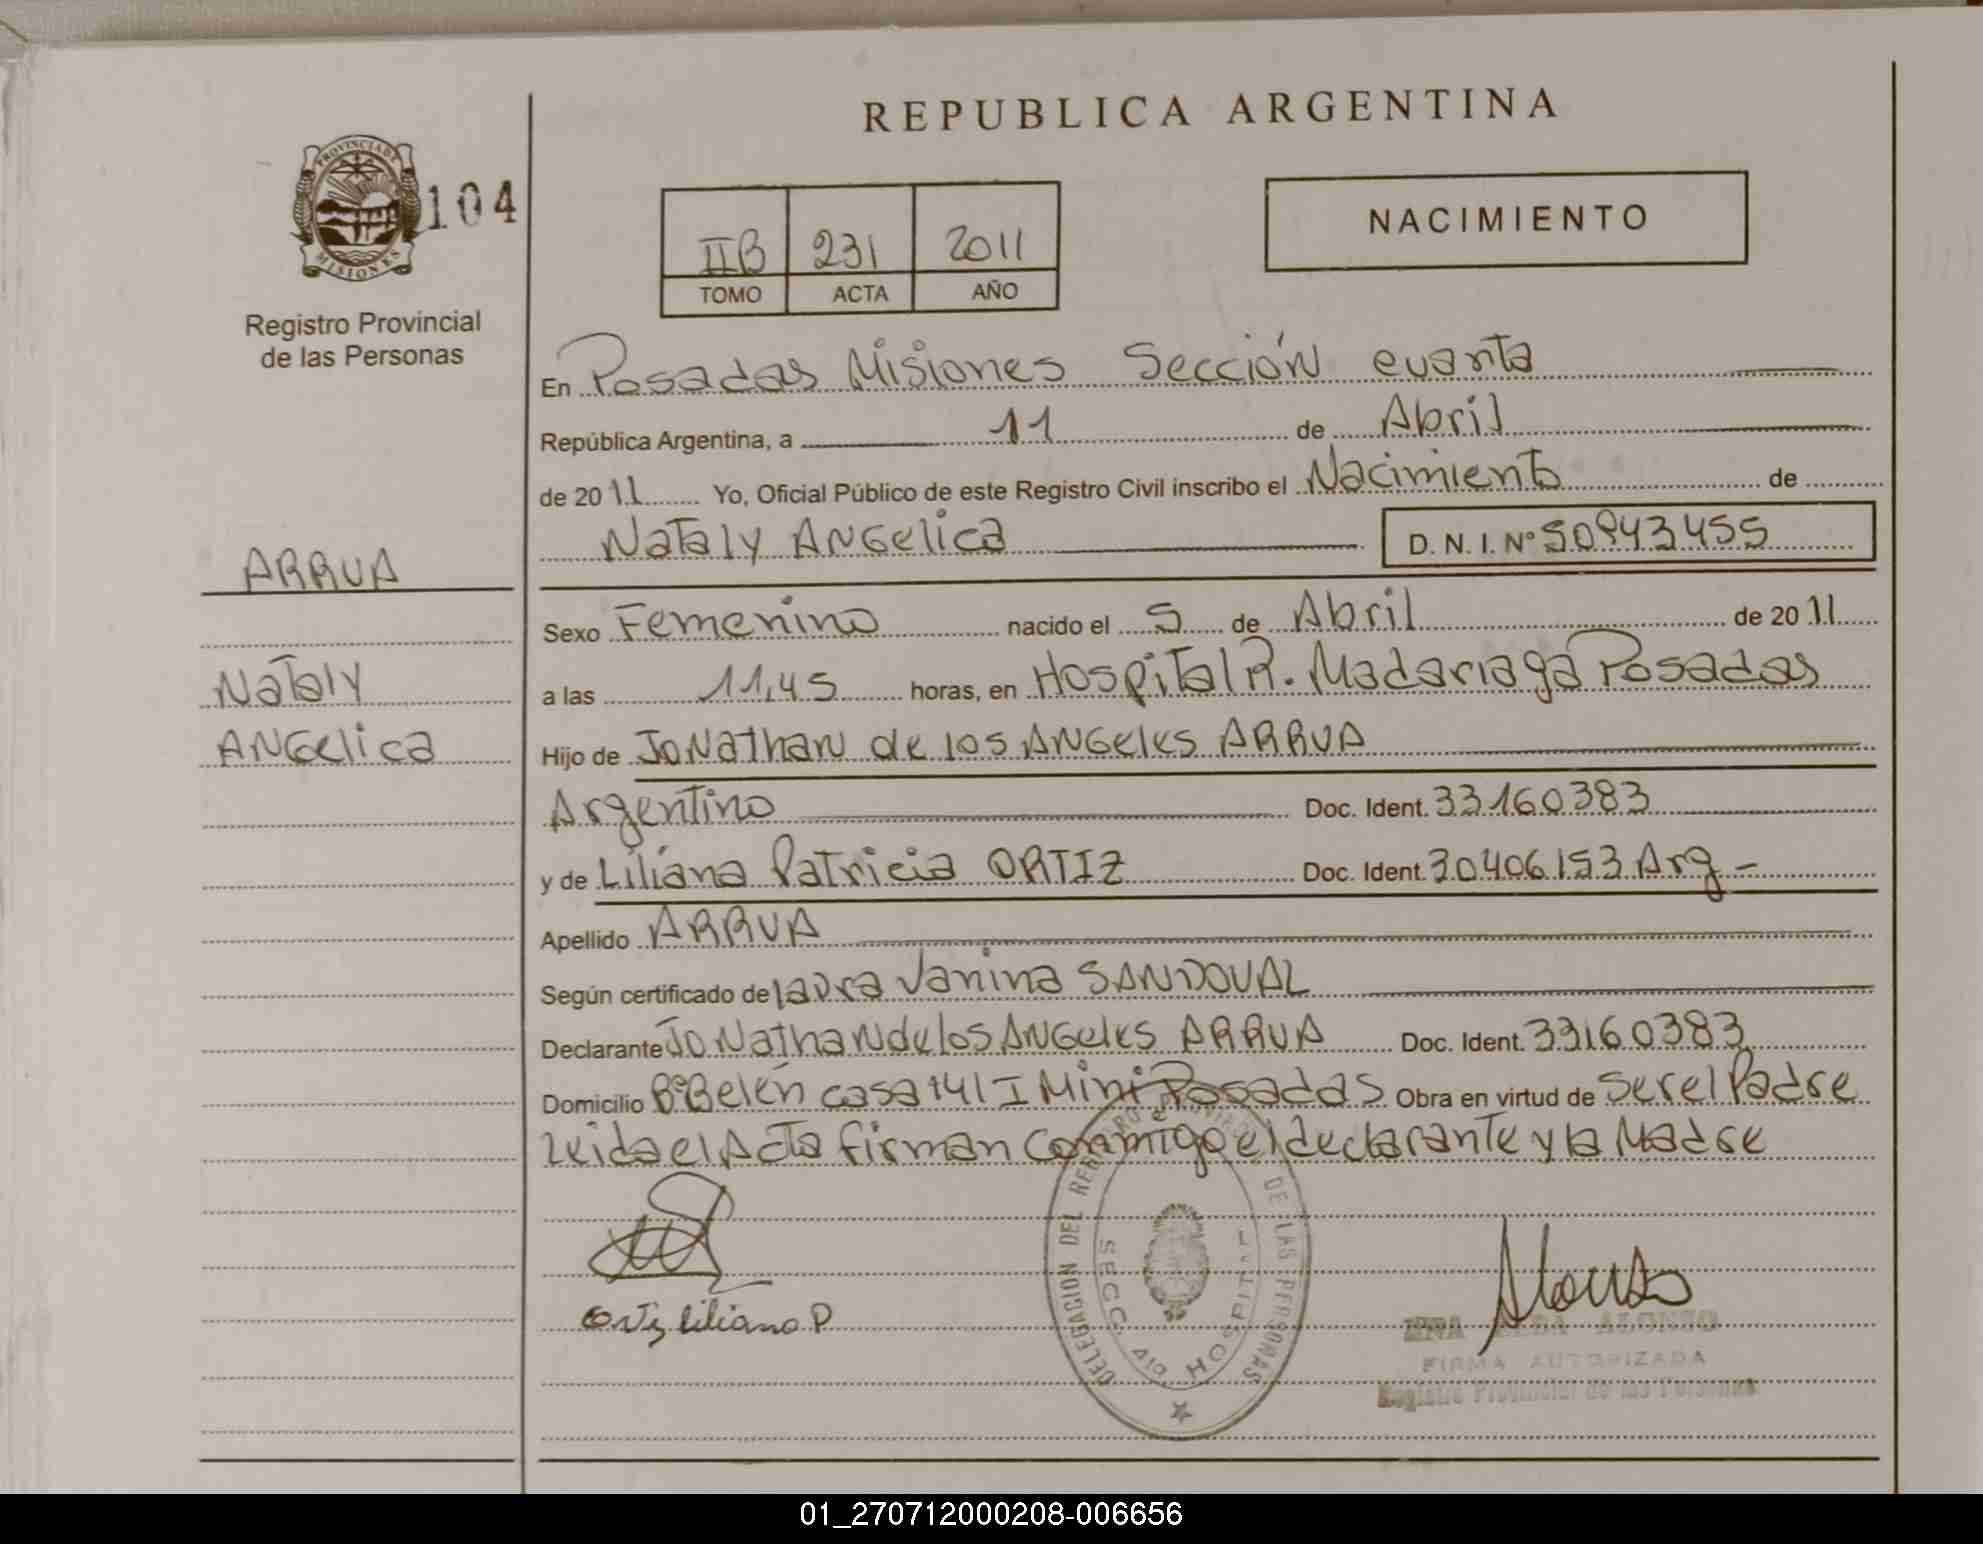 REPUBLICA ARGENTINA
PROVINCIA DE
MISIONES
104
Registro Provincial
de las Personas
IIB 231 2011
TOMO ACTA AÑO
NACIMIENTO
En Posadas Misiones Sección cuarta
República Argentina, a 11 de Abril
de 2011 Yo, Oficial Público de este Registro Civil inscribo el Nacimiento de
Nataly ANGelica D. N. I. Nº 50943455
ARRUA
Nataly
ANGelica
Sexo Femenino nacido el 5 de Abril de 2011
a las 11,45 horas, en Hospital R. Madariaga Posadas
Hijo de JoNathan de los ANGeles ARRUA
Argentino Doc. Ident. 33160383
y de Liliana Patricia ORTIZ Doc. Ident. 30406153 Arg -
Apellido ARRUA
Según certificado de laura Vanina SANDOVAL
Declarante JoNathan de los ANGeles ARRUA Doc. Ident. 33160383
Domicilio Bº Belén casa 141 I Mini Posadas Obra en virtud de Ser el Padre
leida el Acta firman conmigo el declarante y la Madre
Ortiz liliana P
DELEGACION DEL REGISTRO PROVINCIAL DE LAS PERSONAS
SECC. 4ta HOSPITAL
Alonso
ALBA ALONSO
FIRMA AUTORIZADA
Registro Provincial de las Personas
01_270712000208-006656